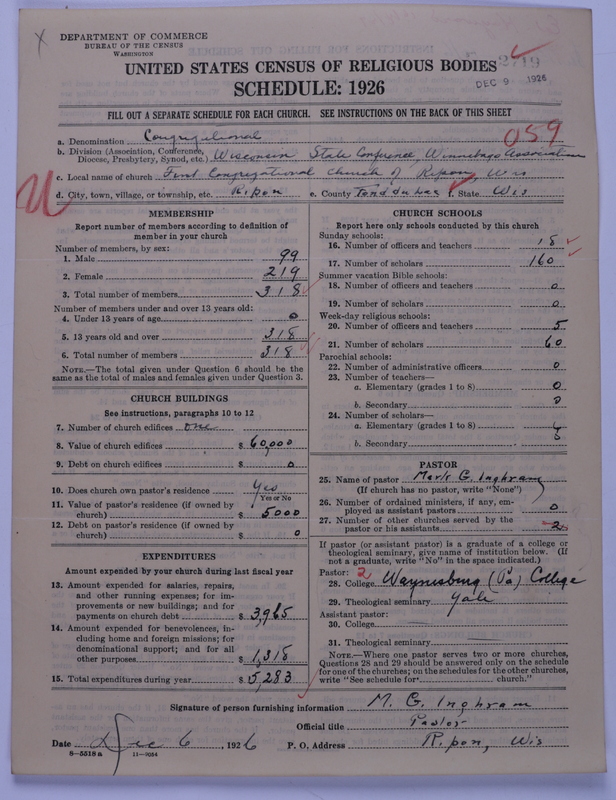 DEPARTMENT OF COMMERCE
BUREAU OF THE CENSUS
WASHINGTON
UNITED STATES CENSUS OF RELIGIOUS BODIES
DEC 9 1926
SCHEDULE: 1926
FILL OUT A SEPARATE SCHEDULE FOR EACH CHURCH. SEE INSTRUCTIONS ON THE BACK OF THIS SHEET
059
a. Denomination Congregational
b. Division (Association, Conference, Diocese, Presbytery, Synod, etc.) Wisconsin State Conference Winnebago Association
c. Local name of church First Congregational Church of Ripon, Wis
d. City, town, village, or township, etc. Ripon e. County Fond du Lac f. State Wis
MEMBERSHIP
Report number of members according to definition of
member in your church
Number of members, by sex:
1. Male 99
2. Female 219
3. Total number of members 318
Number of members under and over 13 years old:
4. Under 13 years of age 0
5. 13 years old and over 318
6. Total number of members 318
NOTE.—The total given under Question 6 should be
same as the total of males and females given under Question 3.
CHURCH BUILDINGS
See instructions, paragraphs 10 to 12
7. Number of church edifices one
8. Value of church edifices $ 60,000
9. Debt on church edifices $ 0
10. Does church own pastor's residence Yes
Yes or No
11. Value of pastor's residence (if owned by
church) $ 5000
12. Debt on pastor's residence (if owned by
church) $ 0
EXPENDITURES
Amount expended by your church during last fiscal year
13. Amount expended for salaries, repairs,
and other running expenses; for im-
provements or new buildings; and for
payments on church debt $ 3,965
14. Amount expended for benevolences, in-
cluding home and foreign missions; for
denominational support; and for all
other purposes $ 1,318
15. Total expenditures during year $ 5,283
CHURCH SCHOOLS
Report here only schools conducted by this church
Sunday schools:
16. Number of officers and teachers 18
17. Number of scholars 160
Summer vacation Bible schools:
18. Number of officers and teachers 0
19. Number of scholars 0
Week-day religious schools:
20. Number of officers and teachers 5
21. Number of scholars 60
Parochial schools:
22. Number of administrative officers 0
23. Number of teachers—
a. Elementary (grades 1 to 8) 0
b. Secondary 0
24. Number of scholars—
a. Elementary (grades 1 to 8)
b. Secondary
PASTOR
25. Name of pastor Mark G. Inghram
(If church has no pastor, write "None")
26. Number of ordained ministers, if any, em-
ployed as assistant pastors 0
27. Number of other churches served by the
pastor or his assistants 2
If pastor (or assistant pastor) is a graduate of a college or
theological seminary, give name of institution below. (If
not a graduate, write "No" in the space indicated.)
Pastor: 2
28. College Waynesburg (Pa) College
29. Theological seminary Yale
Assistant pastor:
30. College
31. Theological seminary
NOTE.—Where one pastor serves two or more churches,
Questions 28 and 29 should be answered only on the schedule
for one of the churches; on the schedules for the other churches,
write "See schedule for church."
Signature of person furnishing information M. G. Inghram
Official title Pastor
Date Dec 6, 1926 P. O. Address Ripon, Wis
8—5518 a 11—9054